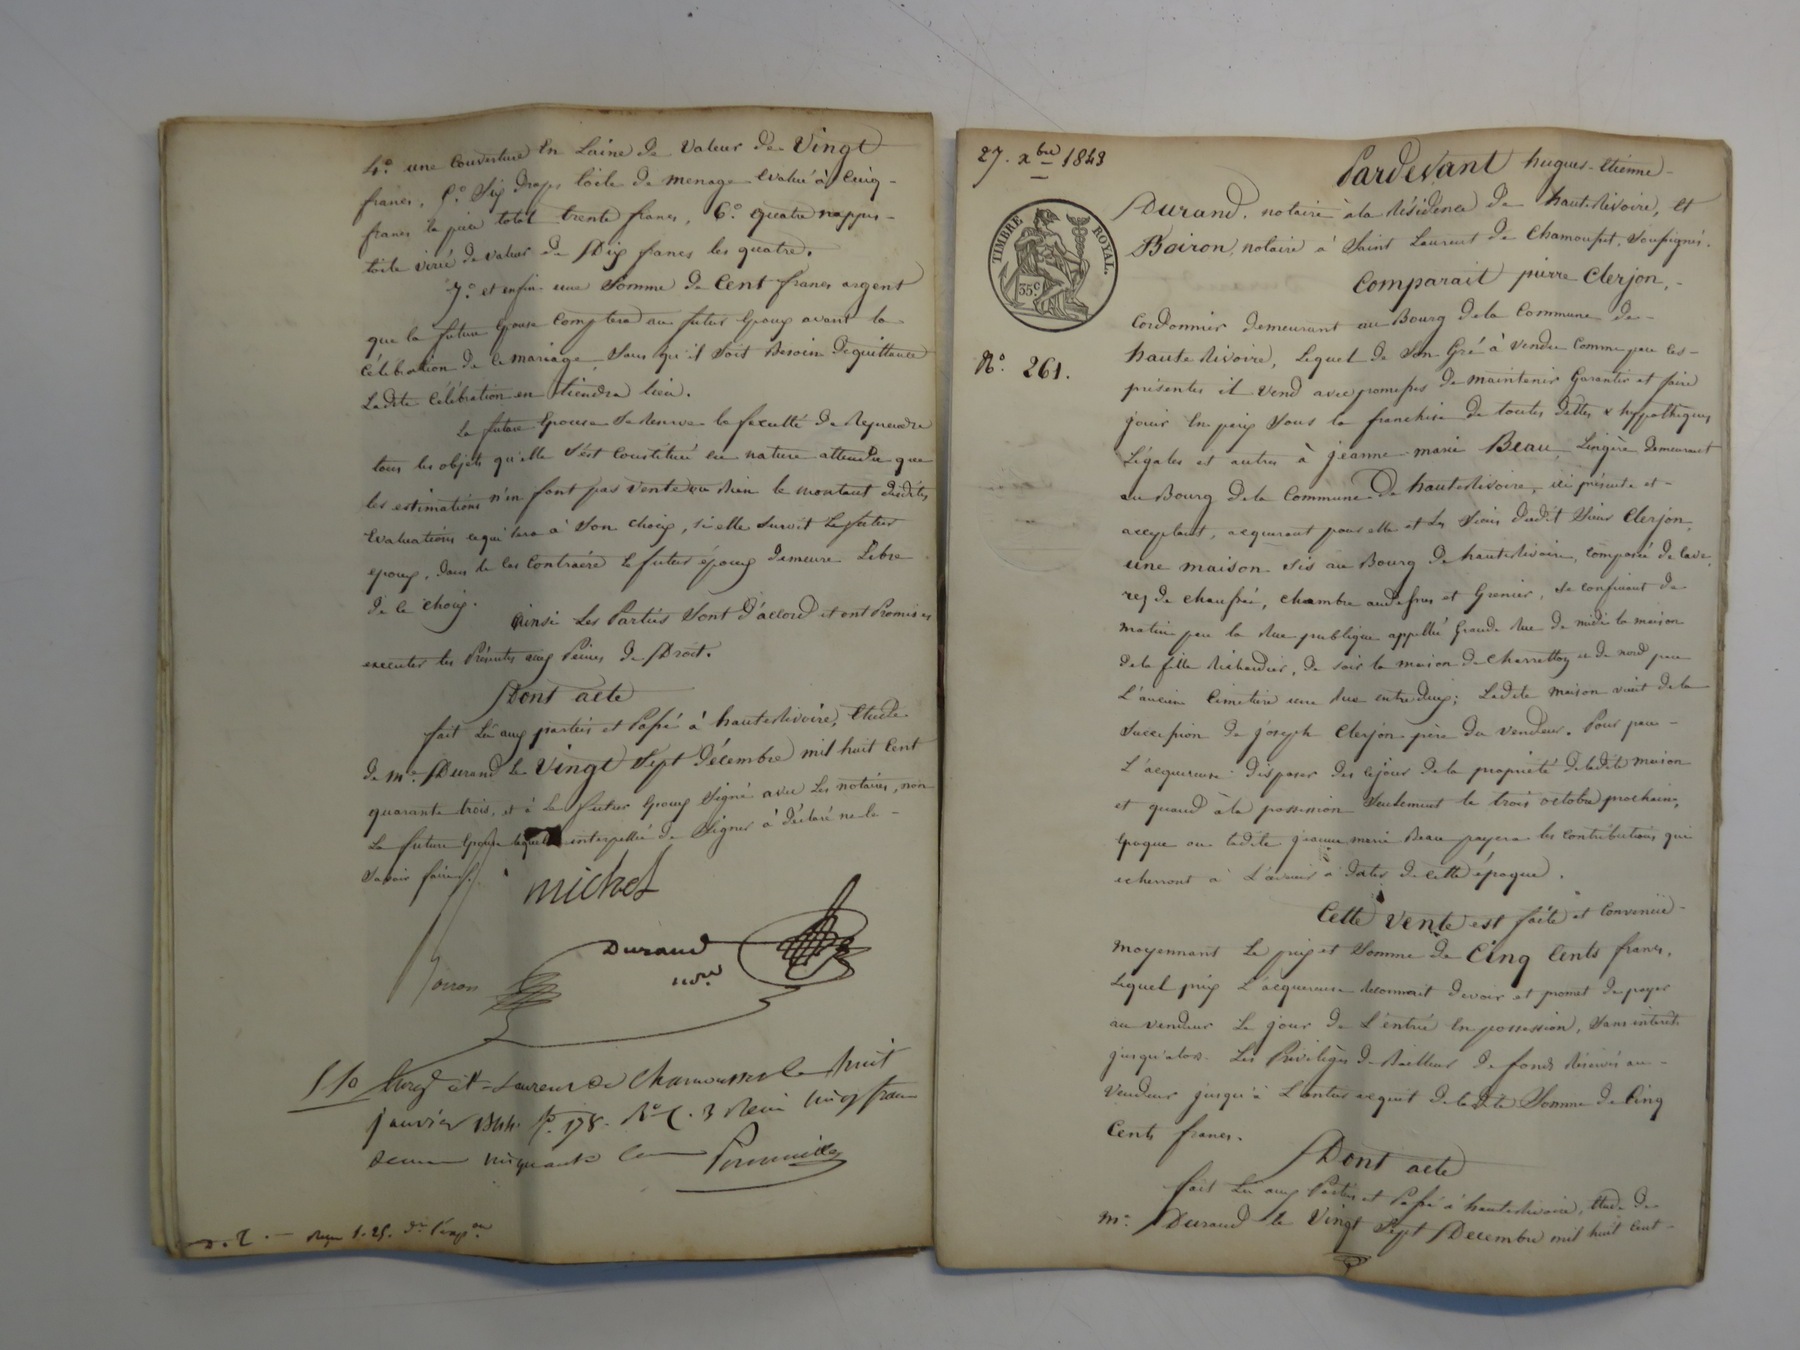 4.° une Couverture En Laine de Valeur de Vingt
francs, 5.° Six draps toile de menage Evalué à Cinq-
francs la pièce total trente francs, 6.° quatre nappes-
toile de valeur de Dix francs les quatre.
7.° et enfin une Somme de Cent francs argent
que la future Epouse Comptera au futur Epoux avant la
célébration de ce mariage, Sans qu'il Soit Besoin de quittance
Ladite Célébration en tiendra lieu.
La future Epouse Se Reserve la faculté de Reprendre
tous les objets qu'elle S'est Constitué en nature attendu que
les estimations n'en font pas Vente ou Bien le montant desdites
Evaluations cequi Sera à Son choix, Si elle Survit Le futur
époux, dans le Cas Contraire le futur époux demeure Libre
de le choix.
Ainsi Les Parties Sont d'accord et ont Promis
executer les Présentes aux Peines de Droit.
Dont acte
fait Lu aux parties et Passé à hauterivoire, Etude
de m.e Durand le Vingt Sept décembre mil huit Cent
quarante trois, et à Le futur Epoux Signé avec Les notaires, non
La future Epouse laquelle interpellée de Signer à déclaré ne le -
Savoir faire.
michel
Durand
no.re
Boiron
Enreg.é à St Laurent de Chamousset le huit
janvier 1844. f.° 178. R.° C. 3 Reçu cinq francs
décime cinquante cen
27. xbre 1843
TIMBRE ROYAL.
35 c
N.° 261.
Pardevant hugues-Etienne-
Durand, notaire à la Résidence de hauterivoire, Et
Boiron, notaire à Saint Laurent de Chamousset, Soussignés.
Comparait pierre Clerjon,-
Cordonnier demeurant au Bourg de la Commune de-
hauterivoire, Lequel de Son Gré à Vendu Comme par Ces-
présentes il Vend avec promesses de maintenir Garantir et faire
jouir En paix Sous la franchise de toutes dettes & hypothèques
Légales et autres à jeanne-marie Beau, Lingère demeurant
au Bourg de la Commune de hauterivoire, ici présente et-
acceptant, acquérant pour elle et Les Siens dudit Sieur Clerjon,
une maison Sis au Bourg de hauterivoire, Composé de Cave,
rez de chaussée, chambre audessus et Grenier, Se confinant de
matin par la Rue publique appellée Grande Rue de midi la maison
de la fille Richardier, de soir la maison de Charretton et de nord par
L'ancien Cimetière une Rue entredeux; Ladite maison vient de la
Succession de joseph Clerjon père du vendeur. Pour par-
L'acquereuse disposer dès cejour de la propriété deladite maison
et quand à la possession Seulement le trois octobre prochain,
époque ou ladite jeanne marie Beau payera les Contributions qui
echerront à L'avenir à dater de cette époque.
Cette Vente est faite et Convenue-
moyennant Le prix et Somme de Cinq Cents francs,
Lequel prix L'acquereuse Reconnait devoir et promet de payer
au vendeur Le jour de L'entrée En possession, Sans intérêts
jusqu'alors. Les Privilèges de Bailleur de fonds Réservés au-
Vendeur jusqu'à L'entier acquit de ladite Somme de Cinq
Cents francs.
Dont acte
fait Lu aux Parties et Passé à hauterivoire, Etude de
m.e Durand le Vingt Sept Decembre mil huit Cent-